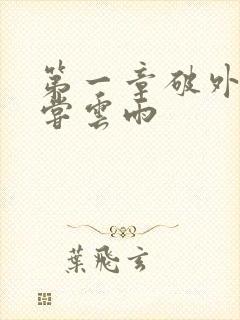 第一章破外
嘗雲雨
葉飛玄